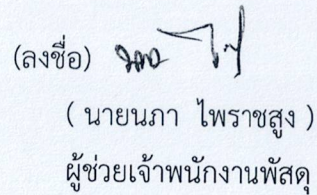 (ลงชื่อ)
( นายนภา ไพราชสูง )
ผู้ช่วยเจ้าพนักงานพัสดุ